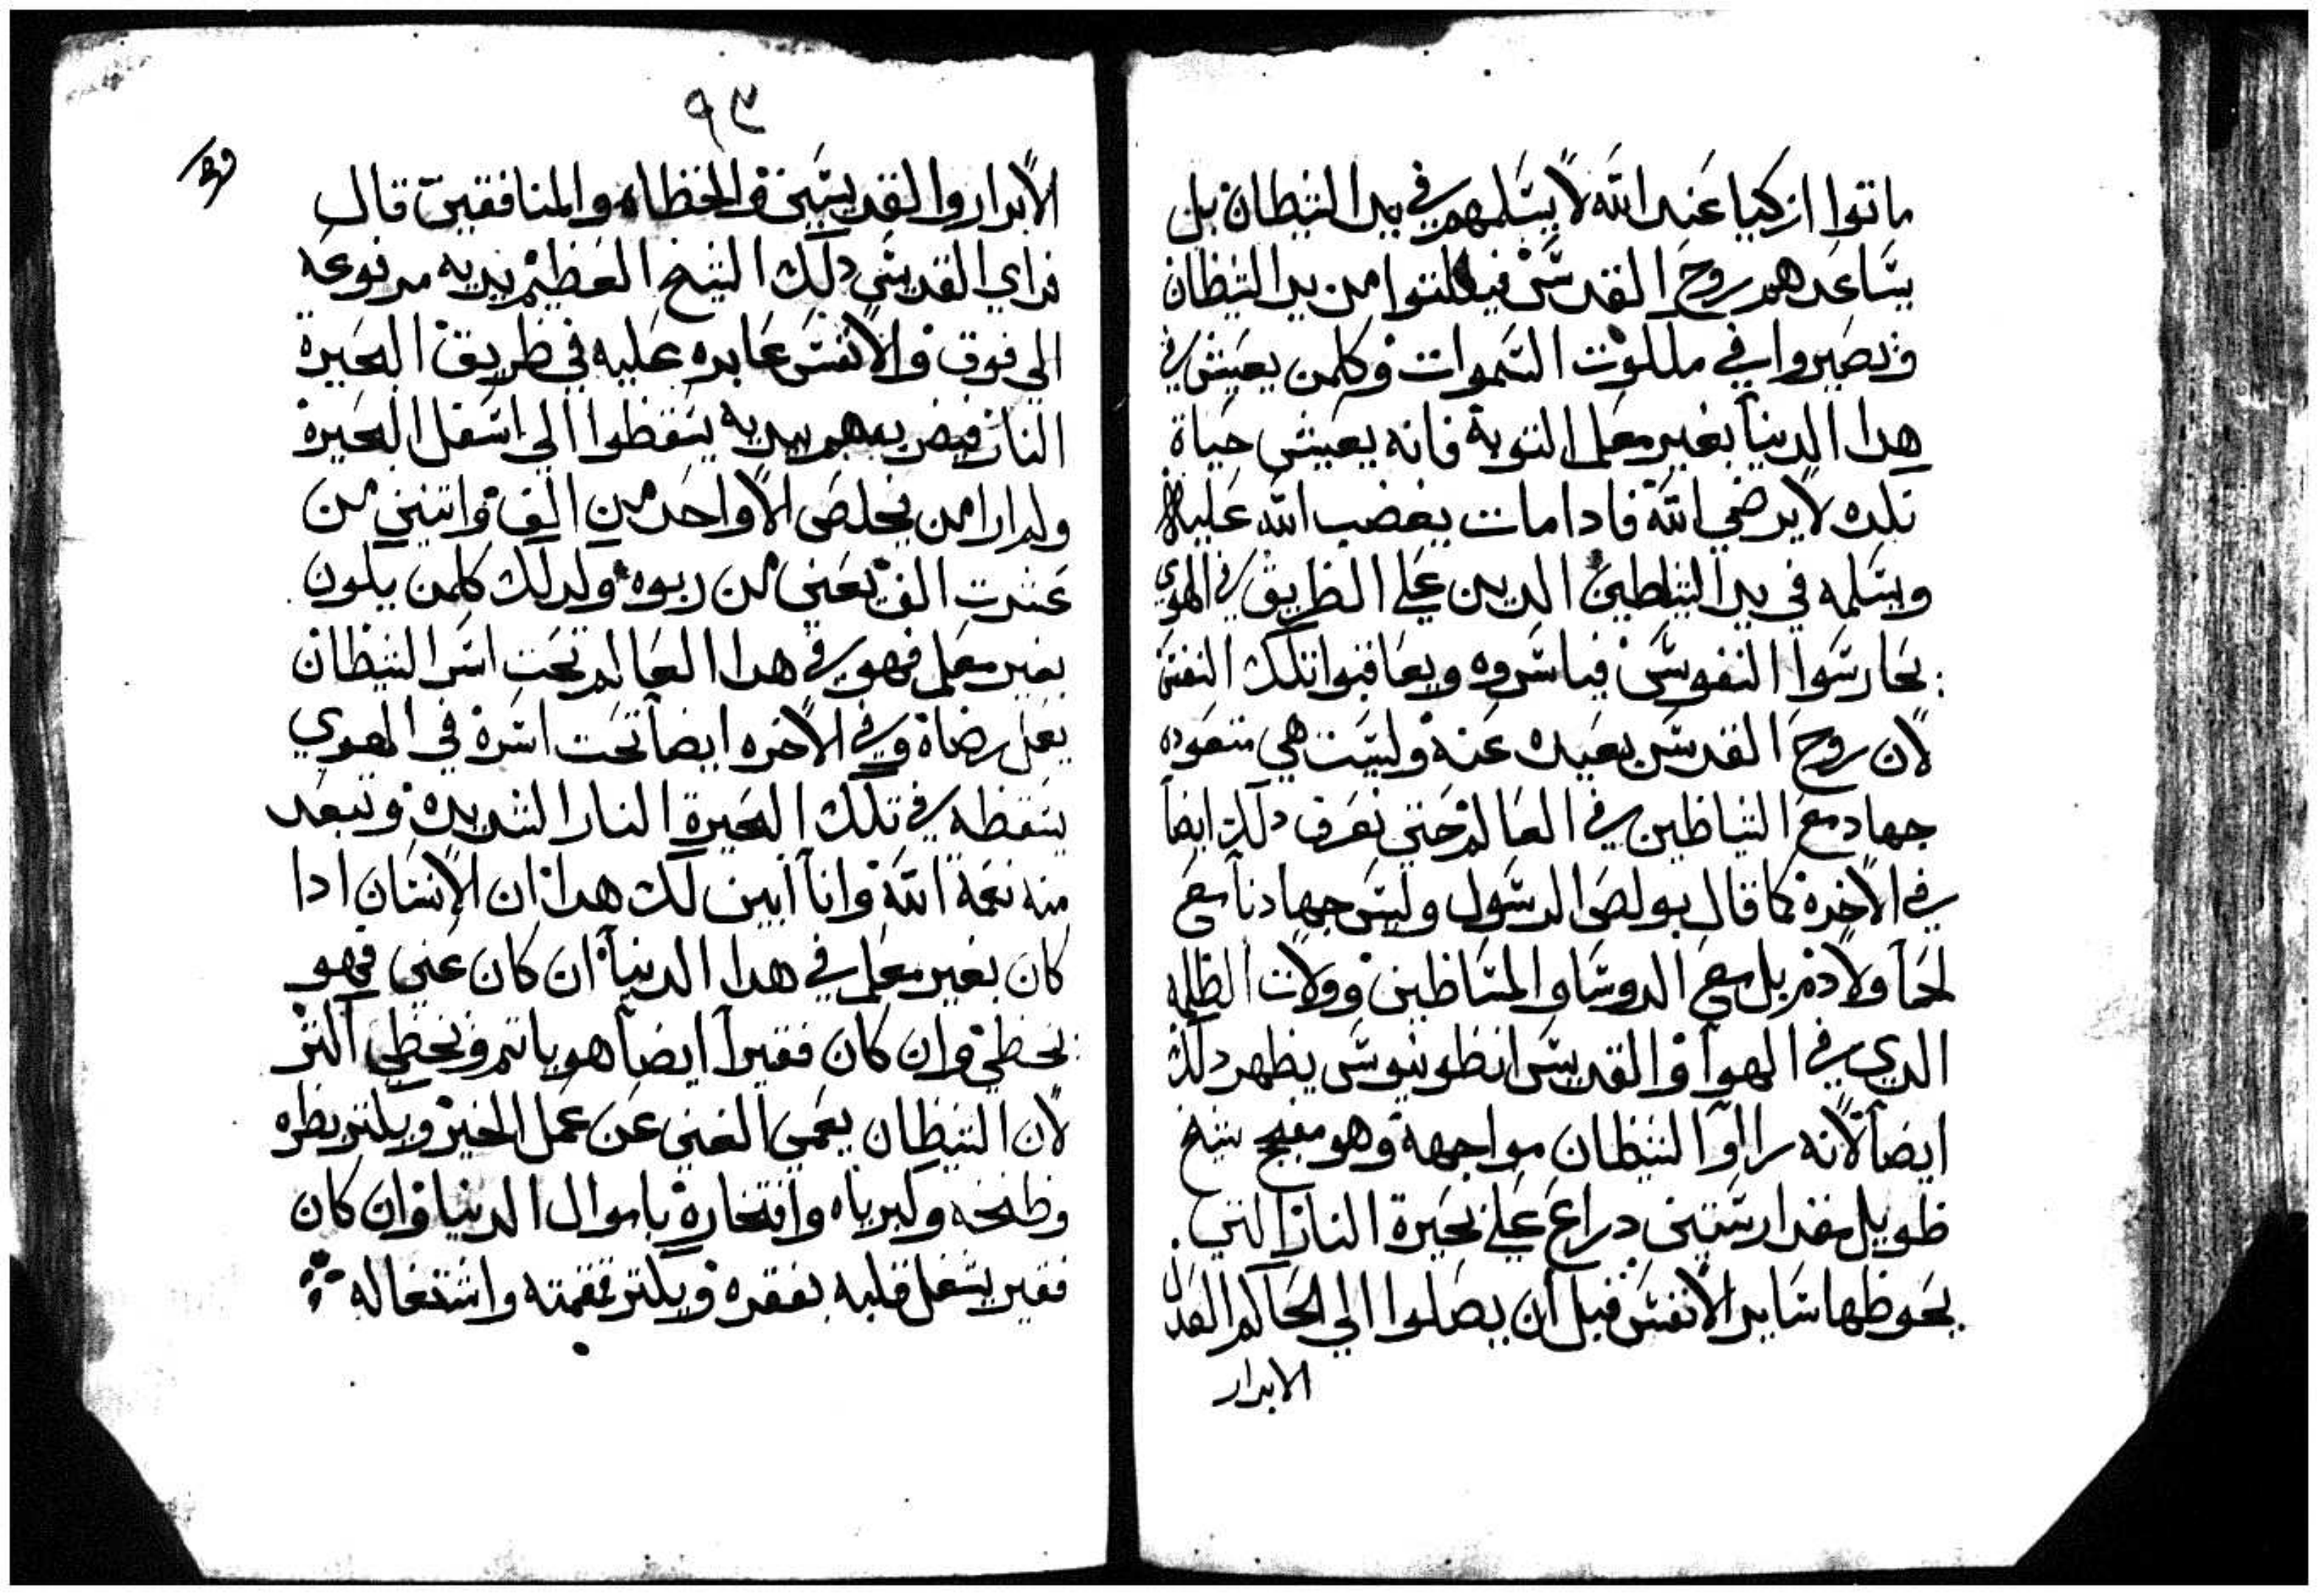 ماتوا ازكيا عند الله لا يسلمهم في يد الشيطان بل
يساعدهم روح القدس فيفلتوا من يد الشيطان
ويصيروا في ملكوت السموات وكلمن يعيش في
هدا الدنيا بغير معلم التوبة فانه يعيش حياة
نكده لا يرضي الله فادا مات يغضب الله عليه
ويسلمه في يد الشياطين الدين علي الطريق في الهوي
يحارسوا النفوس فياسروه ويعاقبوا تلك النفس
لان روح القدس بعيده عنه وليست هي متعوده
جهاد مع الشياطين في العالم حتي تعرف دلك ايضاً
في الاخرة كما قال بولص الرسول وليس جهادنا مع
لحماً ولا دم بل مع الروسا والمساطين وولات الظلمه
الدي في الهوآ والقديس انطونيوس يظهر دلك
ايضاً لانه راا الشيطان مواجهة وهو مقبح شيخ
طويل مقدار ستين دراع علي بحيرة النار التي
يحوطها ساير الانفس قبل ان يصلوا الي الحاكم العدل
الابرار
٩٣
الابرار والقديسين والخطاه والمنافقين قال
فراي القديس دلك الشيخ العظيم يديه مرفوعه
الي فوق والانفس عابره عليه في طريق البحيرة
النار فيضربهم بيديه يسقطوا الي اسفل البحيرة
ولم ارا من يخلص الا واحد من الف واتنين من
عشرت الف يعني من ربوه ولدلك كلمن يكون
بغير معلم فهو في هدا العالم تحت اسر الشيطان
يعمل رضاة وفي الاخره ايضاً تحت اسرة في الهوي
يسقطه في تلك البحيرة النار الشديده وتبعد
منه نعمة الله وانا ابين لك هدا ان الانسان ادا
كان بغير معلم في هدا الدنيا ان كان غني فهو
يخطي وان كان فقيراً ايضاً هو ياتم ويخطي اكتر
لان الشيطان يعمي الغني عن عمل الخير ويكتر بطره
وطنخه وكبرياه وافتخارة باموال الدنيا وان كان
فقير يشغل قلبه بفقره ويكتر نقمته واشتغاله